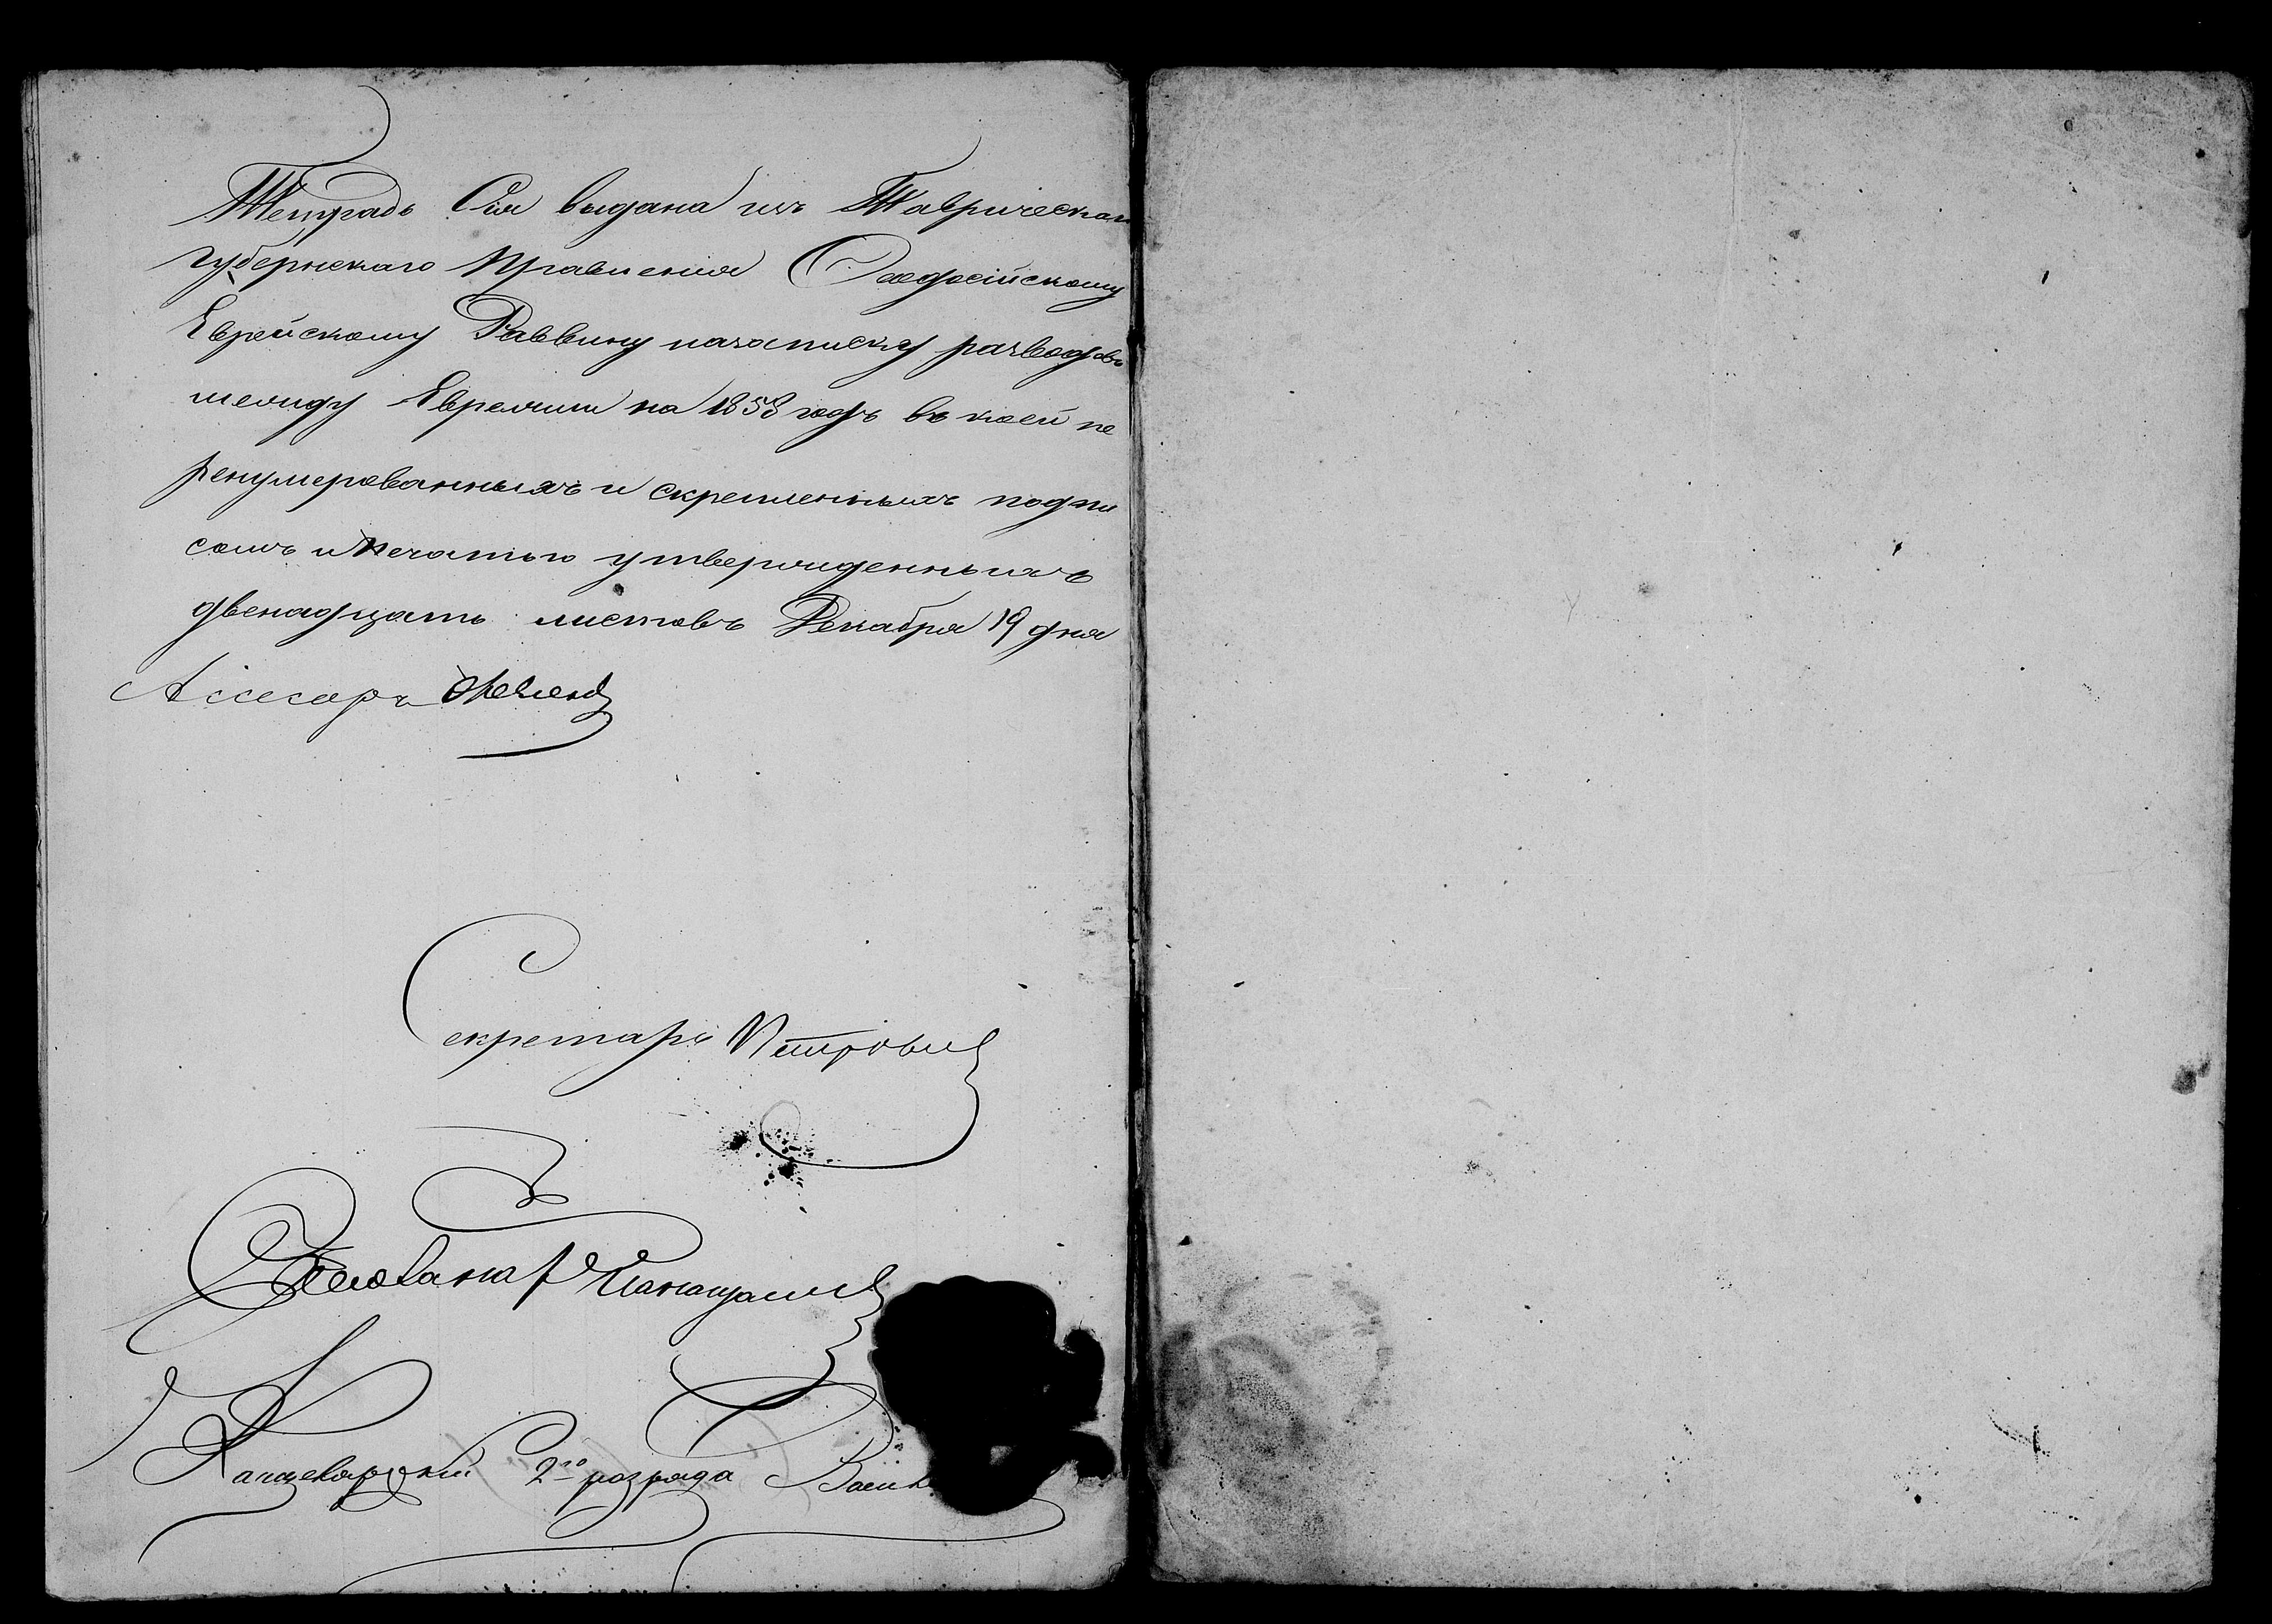 Тетрадь Сія выдана изъ Таврическаго
губернскаго Правленія Ѳеодосійскому
Еврейскому Раввину на записку разводовъ
между Евреями на 1858 годъ въ коей пе
ренумерованныхъ и скрепленныхъ подпи
сомъ и Печатью утвержденныхъ
двенадцать листовъ Декабря 19 дня
Ассесоръ
Секретарь Петровъ
Канцелярскій 2го розряда